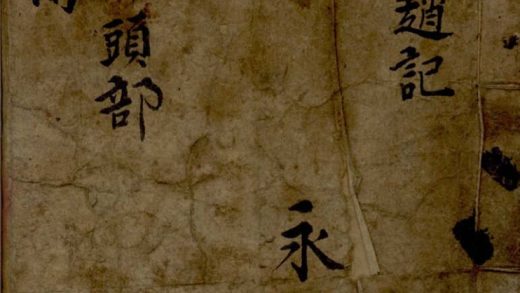 趙記
永
頭部